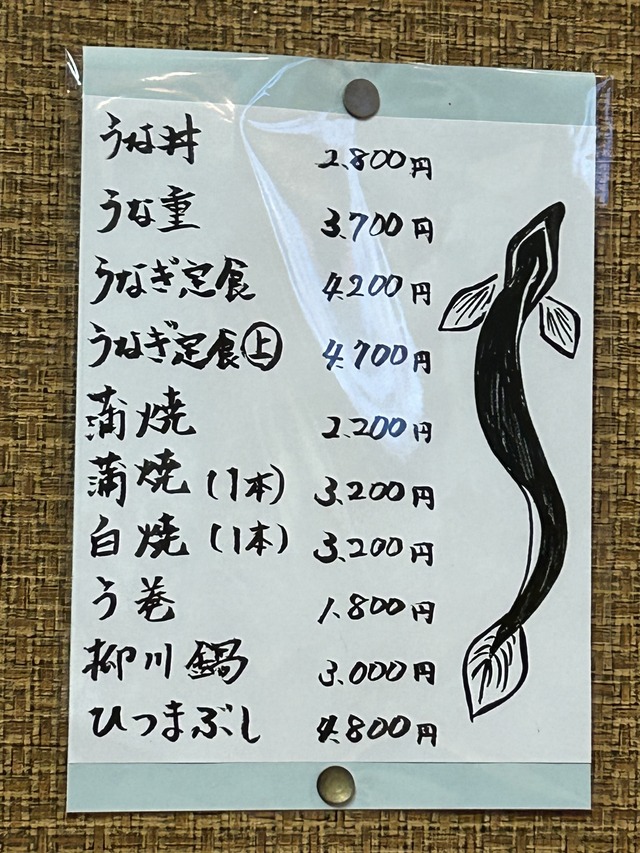 うな丼 2.800円
うな重 3.700円
うなぎ定食 4.200円
うなぎ定食㊤ 4.700円
蒲焼 2.200円
蒲焼(1本) 3.200円
白焼(1本) 3.200円
う巻 1.800円
柳川鍋 3.000円
ひつまぶし 4.800円